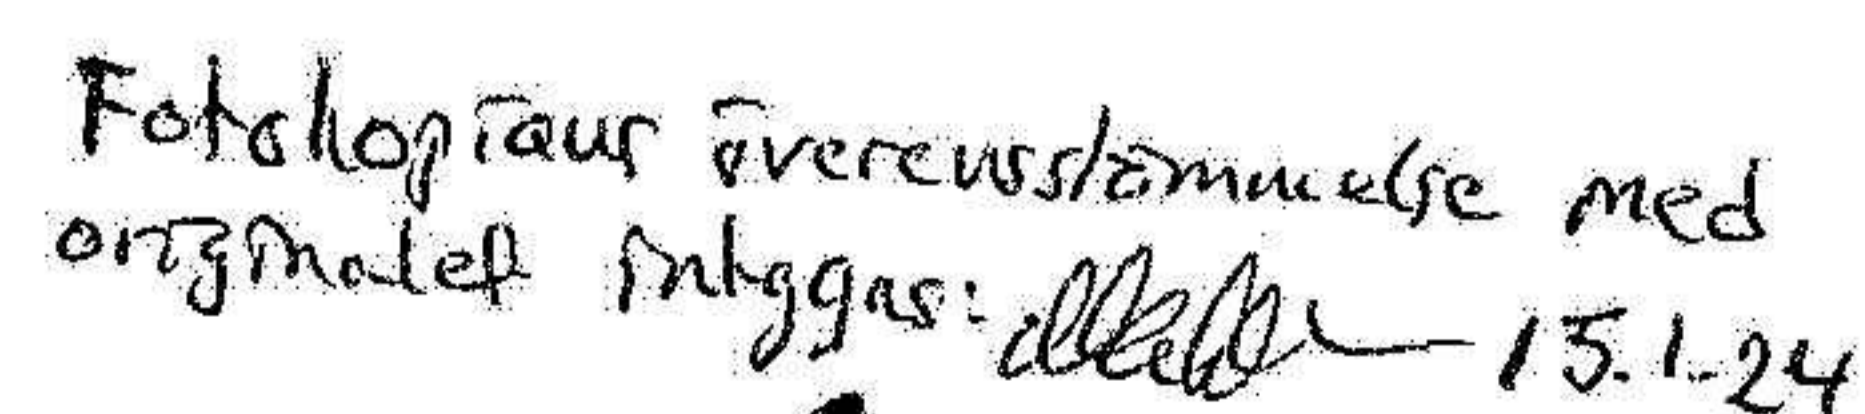 Fotokopians överensstämmelse med
originalet intygas: 15.1.24